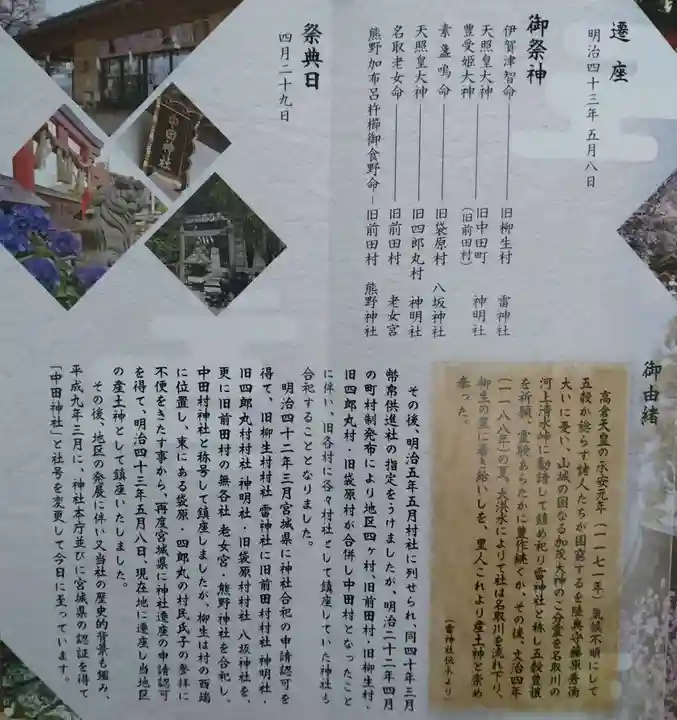 遷座
明治四十三年五月八日
御祭神
伊賀津智命―旧柳生村 雷神社
天照皇大神―旧中田町 神明社
豊受姫大神 (旧前田村)
素盞鳴命―旧袋原村 八坂神社
天照皇大神―旧四郎丸村 神明社
名取老女命―旧前田村 老女宮
熊野加布呂杵櫛御食野命―旧前田村 熊野神社
祭典日
四月二十九日
中田神社
御由緒
高倉天皇の承安元年(一一七一年)気候不順にして
五穀か稔らす諸人たちが困窮するを陸奥守藤原秀衡
大いに憂い、山城の国なる加茂大神のご分霊を名取川の
河上清水峠に勧請して鎮め祀り雷神社と称し五穀豊穣
を祈願、霊験あらたかに豊作続くが、その後、文治四年
(一一八八年)の夏、大洪水によりて社は名取川を流れ下り、
柳生の里に着き給いしを、里人これより産土神と崇め
奉った。
(雷神社伝承より)
その後、明治五年五月村社に列せられ、同四十年三月
幣帛供進社の指定をうけましたが、明治二十二年四月
の町村制発布により地区四ヶ村、旧前田村・旧柳生村・
旧四郎丸村・旧袋原村が合併し中田村となったこと
に伴い、旧各村に各々村社として鎮座していた神社も
合祀することとなりました。
明治四十二年三月宮城県に神社合祀の申請認可を
得て、旧柳生村村社 雷神社に旧前田村村社 神明社・
旧四郎丸村村社 神明社・旧袋原村村社 八坂神社を、
更に旧前田村の無各社 老女宮・熊野神社を合祀し、
中田村神社と称号して鎮座しましたが、柳生は村の西端
に位置し、東にある袋原・四郎丸の村民氏子の参拝に
不便をきたす事から、再度宮城県に神社遷座の申請認可
を得て、明治四十三年五月八日、現在地に遷座し当地区
の産土神として鎮座いたしました。
その後、地区の発展に伴い又当社の歴史的背景も鑑み、
平成九年三月に、神社本庁並びに宮城県の認証を得て
「中田神社」と社号を変更して今日に至っています。